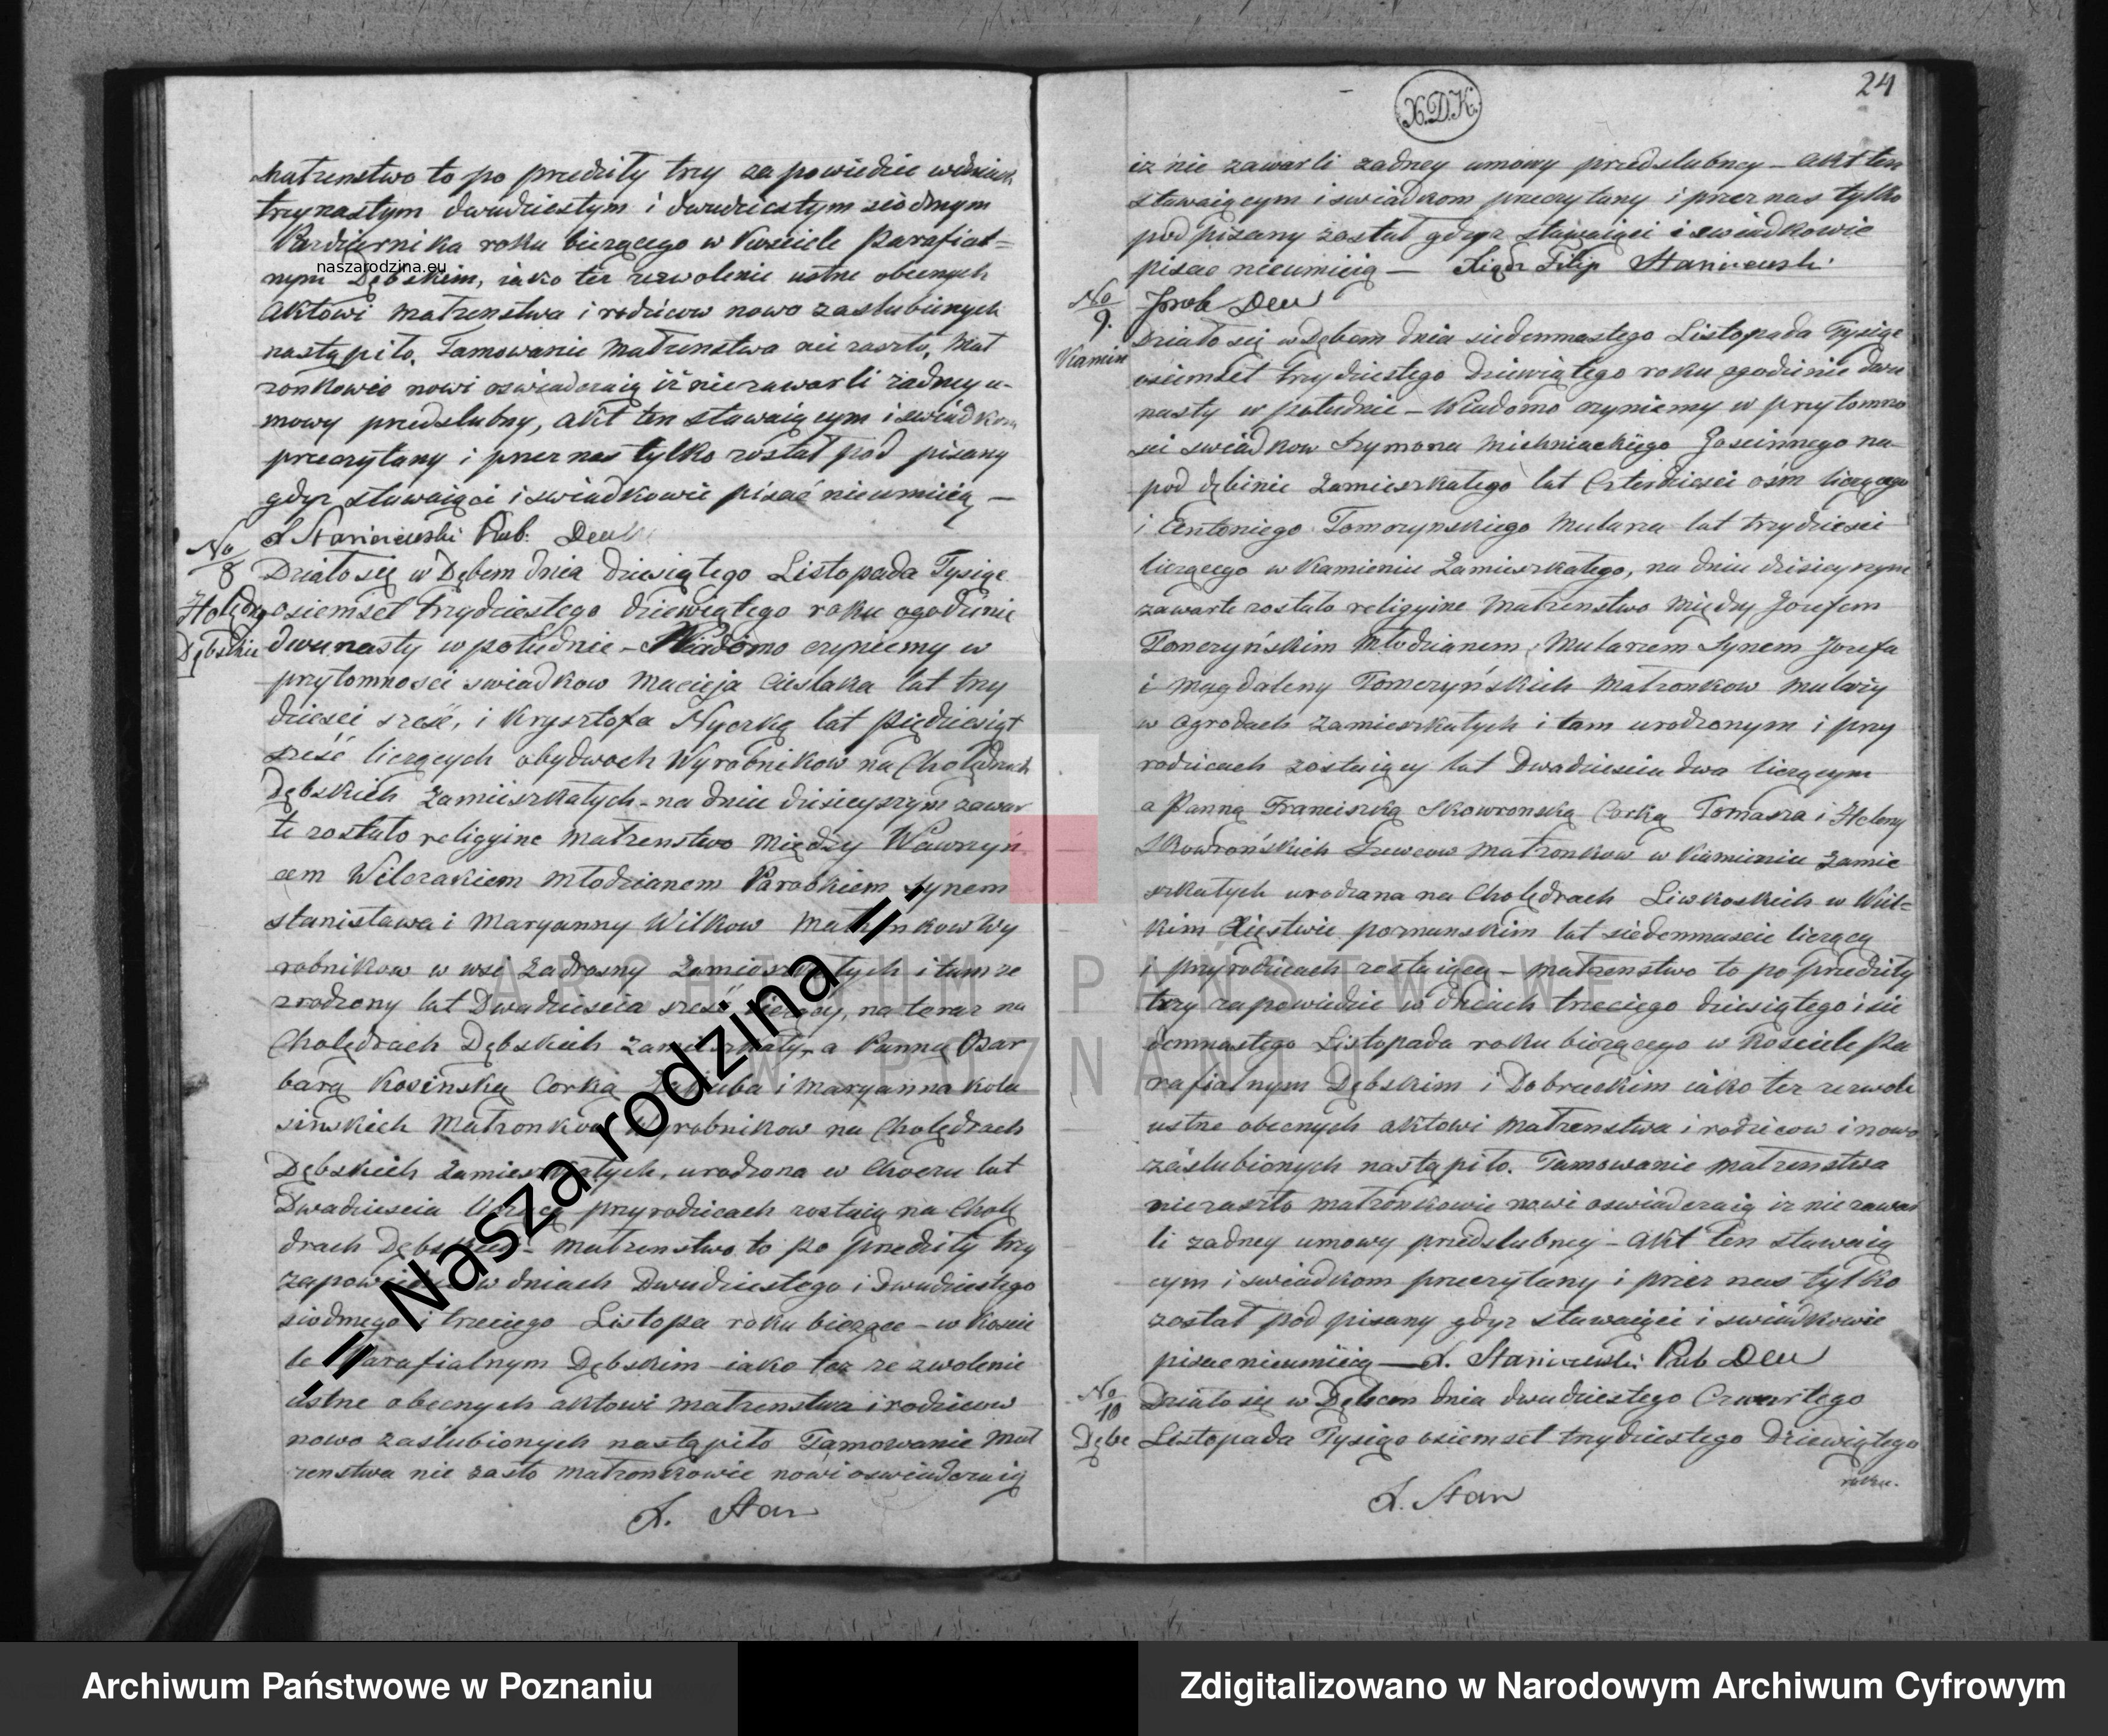 Małzenstwo to po przedziły trzy zapowiedzie wdniach
trzynastym dwudziestym i dwudziestym siodmym
Pazdziernika roku bierzącego w Kosciele Parafial=
nym Dębskim, iako tez zezwolenie ustne obecnych
Aktowi Małzenstwa i rodzicow nowo zaslubionych
nastąpiło, Tamowanie Małzenstwa nie zaszło, Mał
zonkowie nowi oswiadczaią iż niezawarli żadney u-
mowy przedslubny, Akt ten stawaiącym i swiadkom
przeczytany i przez nas tylko został pod pisany
gdyz stawaiący i swiadkowie pisać nieumieią —
X Staniszewski Prob. Dem
No
8
Holędry
Dębskie
Działo się w Dębem dnia dziesiątego Listopada Tysiąc
osiemset trzydziestego dziewiątego roku ogodzinie
dwunasty wpołudnie – Wiadomo czyniemy w
przytomnosci swiadkow Macieja Cieslaka lat trzy
dziesci szesć, i Krysztofa Nyerką lat pięddziesiąt
szesć liczących obydwoch Wyrobnikow na Cholędrach
Dębskich Zamieszkałych – na dniu dzisieyszym zawar
te zostało religyine Małzenstwo Między Wawrzyń
cem Wilczakiem Młodzianem Parobkiem Synem
Stanisława i Maryanny Wilkow Małzonkow Wy
robnikow w wsi Zadrosny Zamieszkałych i tamze
zrodzony lat Dwadziescia szesć liczący, na teraz na
Cholędrach Dębskich Zamieszkały – a Panną Bar
barą Kosinską Corką Jakuba i Maryanna Kola
sinskich Małzonkow Wyrobnikow na Cholędrach
Dębskich Zamieszkałych, urodzona w lat
Dwadziescia liczącą przyrodzicach zostaią na Cholę
drach Dębskich – Małzenstwo to po przedziły trzy
zapowiedzie w dniach Dwudziestego i Dwudziestego
siodmego i trzeciego Listopa roku bierzące – w Koscie
le Parafialnym Dębskim iako tez ze zwolenie
ustne obecnych aktowi małzenstwa i rodzicow
nowo zaslubionych nastąpiło Tamowanie Mał
zenstwa nie zasło małzonkowie nowi oswiadczaią
X. Stan
X.D.K.
24
iz nie zawarli zadney umowy przedslubney – Akt ten
stawaiącym i swiadkom przeczytany i przez nas tylko
pod pisany został gdyz stawaiący i swiadkowie
pisac nieumieią — Xiądz Filip Staniszewski
Prob Dem
No
9.
Kamin
Działo się w Dębem dnia siedemnastego Listopada Tysiąc
osiemset trzydziestego Dziewiątego roku ogodzinie dwu
nasty w południe – Wiadomo czyniemy w przytomno
sci swiadkow Szymona Michniackiego Goscinnego na
pod dębinie Zamieszkałego lat Czterdziesci ośm liczącego
i Antoniego Tomczynskiego Mularza lat trzydziesci
liczącego w Kamieniu Zamieszkałego, na dniu dzisieyszym
zawarte zostało religyine Małzenstwo Między Jozefem
Tomczyńskim Młodzianem, Mularzem Synem Jozefa
i Magdaleny Tomczyńskich Małzonkow Mularzy
w Ogrodach Zamieszkałych i tam urodzonym i przy
rodzicach zostaiący lat Dwadziescia dwa liczącym
a Panną Franciszką Skowronską Corką Tomasza i Heleny
Skowrońskich Szewcow Małzonkow w Kamieniu Zamie
szkałych urodzona na Cholędrach Liwkoskich w Wiel=
kim Xięstwie poznanskim lat siedemnascie liczącą
i przyrodzicach zostaiącą – Małzenstwo to po przedziły
trzy zapowiedzie w dniach trzeciego dziesiątego i sie
demnastego Listopada roku bierzącego w Kosciele Pa
rafialnym Dębskim i Dobruckim iako tez zezwole
ustne obecnych aktowi Małzenstwa i rodzicow i nowo
zaslubionych nastąpiło. Tamowanie małzenstwa
niezaszło małzonkowie nowi oswiadczaią iz nie zawar
li zadney umowy przedslubney – Akt ten stawaią
cym i swiadkom przeczytany i przez nas tylko
został pod pisany gdyz stawaiąci i swiadkowie
pisac nieumieią — X. Staniszewski Prob Dem
No
10
Dębe
Działo się w Dębem dnia dwudziestego Czwartego
Listopada Tysiąc osiemset trzydziestego Dziewiątego
roku.
X. Stan
naszarodzina.eu
-= Nasza rodzina =-
ARCHIWUM PAŃSTWOWE
W POZNANIU
Archiwum Państwowe w Poznaniu
Zdigitalizowano w Narodowym Archiwum Cyfrowym